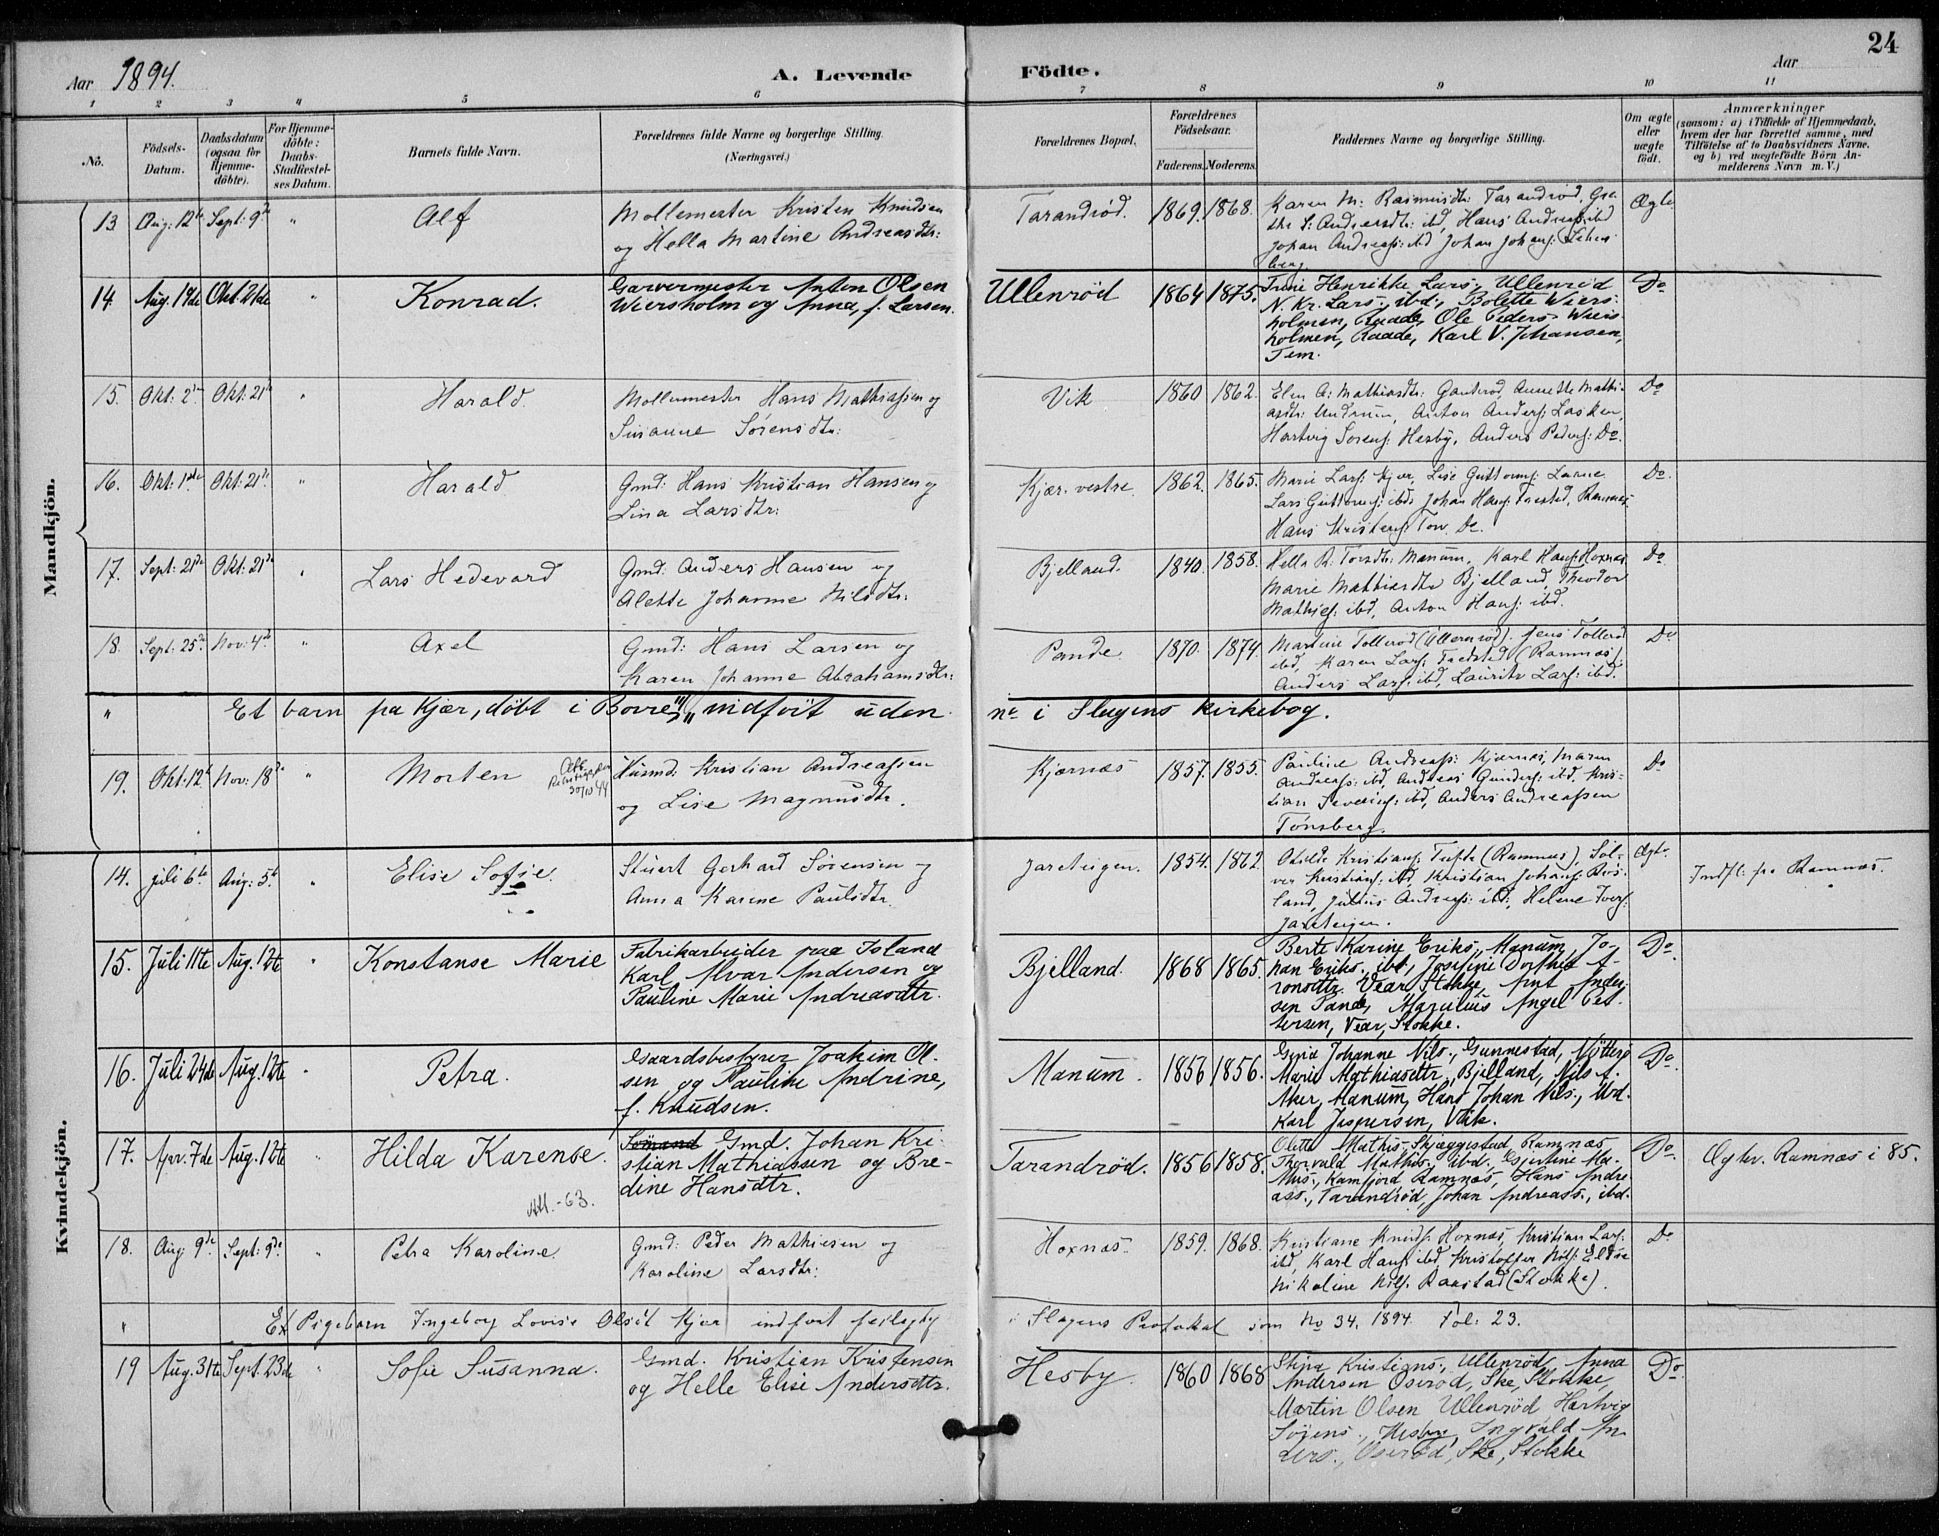 24
Aar 1894.
A. Levende
Födte.
Aar
1 2 3 4 5 6 7 8 9 10 11
No.
Födsels-
Datum.
Daabsdatum
(ogsaa for
Hjemme-
döbte).
For Hjemme-
döbte:
Daabs-
Stadfæstel-
ses Datum.
Barnets fulde Navn.
Forældrenes fulde Navne og borgerlige Stilling.
(Næringsvei.)
Forældrenes Bopæl.
Forældrenes
Födselsaar.
Faderens. Moderens.
Faddernes Navne og borgerlige Stilling.
Om ægte
eller
uægte
födt.
Anmærkninger
(saasom: a) i Tilfælde af Hjemmedaab,
hvem der har forrettet samme, med
Tilföielse af to Daabsvidners Navne,
og b) ved uægtefödte Börn An-
melderens Navn m. V.)
Mandkjön.
13 Aug: 12te Sept: 9de " Alf
Mollemester Kristen Knudsen
og Hella Martine Andreasdtr:
Tarandrød. 1869. 1868.
Karen M: Rasmusdtr: Tarandrød, Gre-
the S: Andersdtr: ibd, Hans Andreass: ibd
Johan Andreass: ibd Johan Johans:
berg.
Ægte
14 Aug. 19de Okt. 21de " Konrad.
Garvermester Anton Olsen
Weiersholm og Anna, f. Larsen.
Ullenrød 1864 1875.
Trine Henrikke Lars., Ullenrød
N. Kr. Lars., ibd., Bolette Wiers-
holmen, Raade, Ole Peders. Wiers-
holmen, Raade, Karl V. Johansen,
Tem.
Do
15. Okt: 2den Okt: 21de " Harald.
Mollemester Hans Mathiassen og
Susanne Sørensdtr:
Vik 1860 1862.
Elen A: Mathiasdtr: Gauterød, Annette Mathi-
asdtr: Undrum, Anton Anders: Lasken,
Hartvig Sørens: Hesby, Anders Peders: Do.
Do
16. Okt: 1ste Okt: 21de " Harald
Gmd: Hans Kristian Hansen og
Lina Larsdtr:
Kjær vestre. 1862. 1865.
Marie Lars: Kjær, Lise Guttorms:
Lars Guttorms: ibd, Johan Hans: Ramnes
Hans Kristens: Do.
Do
17. Sept: 21de Okt: 21de " Lars Hedevard
Gmd: Anders Hansen og
Alette Johanne Nilsdtr:
Bjelland. 1840. 1858.
Hella R. Torsdtr: Manum, Karl Hans: Hoxnæs
Marie Mathiasdtr Bjelland, Theodor
Mathies: ibd, Anton Hans: ibd.
Do
18. Sept: 25de Nov: 4de " Axel
Gmd: Hans Larsen og
Karen Johanne Abrahamsdtr:
Pande. 1870. 1874.
Martine Tollerød (Ullerenrød). Jens Tollerød
ibd, Karen Lars: (Ramnæs),
Anders Lars: ibd, Laurits Lars: ibd.
Do
" Et barn pa Kjær, døbt i Borre, indført uden no i Slagens kirkebog.
19. Okt: 12te Nov: 18de " Morten
30/10 44
Husmd: Kristian Andreassen
og Lise Magnusdtr.
Kjærnæs 1857. 1855.
Pauline Andreass: Kjærnæs, Maren
Andreass: ibd, Andreas Gunders: ibd, Kris-
tian Severins: ibd, Anders Andreassen
Tønsberg.
Do
Kvindekjön.
14. Juli 6te Aug: 5te " Elise Sofie.
Stuert Gerhard Sørensen og
Anna Karine Paulsdtr.
Jareteigen. 1854. 1862.
Otilde Kristians: Tufte (Ramnæs), Søl-
ver Kristians: ibd, Kristian Johans: Ros-
land, Julius Andreass: ibd, Helene Ivers:
Jareteigen.
Ægte.
Indfl. fra Ramnæs.
15. Juli 11te Aug. 12te " Konstanse Marie
Fabrikarbeider paa Island
Karl Alvar Andersen og
Pauline Marie Andreasdtr.
Bjelland. 1868 1865.
Berte Karine Eriks., Manum, Jo-
han Eriks., ibd, Josefine Dorthea A-
ronsdtr. Vear, Stokke, Arnt Ander-
sen Pande, Marelius Angel Pet-
tersen, Vear, Stokke.
Do.
16. Juli 24de Aug. 12te " Petra.
Gaardsbestyrer Joakim Ol-
sen og Pauline Andrine,
f. Knudsen.
Manum. 1856 1856.
Gina Johanne Nils., Gunnestad, Nötterø
Marie Mathiasdtr, Bjelland, Nils A.
Aker, Manum, Hans Johan Nils., ibd.
Karl Jaspersen, Vik.
Do
17. Apr. 7de Aug. 12te " Hilda Karense.
Att. -63.
Sømand Gmd. Johan Kri-
stian Mathiassen og Bre-
dine Hansdtr.
Tarandrød. 1856 1858.
Olette Mathis. Skjæggestad, Ramnæs
Thorvald Mathis. ibd., Gjertine Ma-
this., Kamfjord Ramnæs, Hans Andre-
ass., Tarandrød, Johan Andreass., ibd.
Do.
Ægtev. Ramnæs i 85.
18. Aug: 9de Sept: 9de. " Petra Karoline.
Gmd: Peder Mathiesen og
Karoline Larsdtr:
Hoxnæs. 1859. 1868.
Kristiane Knuds: Hoxnæs, Kristian Lars:
ibd, Karl Hans: ibd, Kristoffer Nils:
Nikoline Nils: Raastad (Stokke).
Do
" Et Pigebarn Ingeborg Lovise Kjær indført feilagtig i Slagens Protokol som No 34. 1894. Fol: 23.
19 Aug. 31te Sept. 23de " Sofie Susanna.
Gmd. Kristian Kristensen
og Helle Elise Andersdtr.
Hesby. 1860 1868
Stina Kristians., Ullenrød, Anna
Andersen Oserød, Ske, Stokke,
Martin Olsen Ullenrød Hartvig
Sørens., Hesby, Ingvald An-
ders., Oserød, Ske, Stokke
Do.